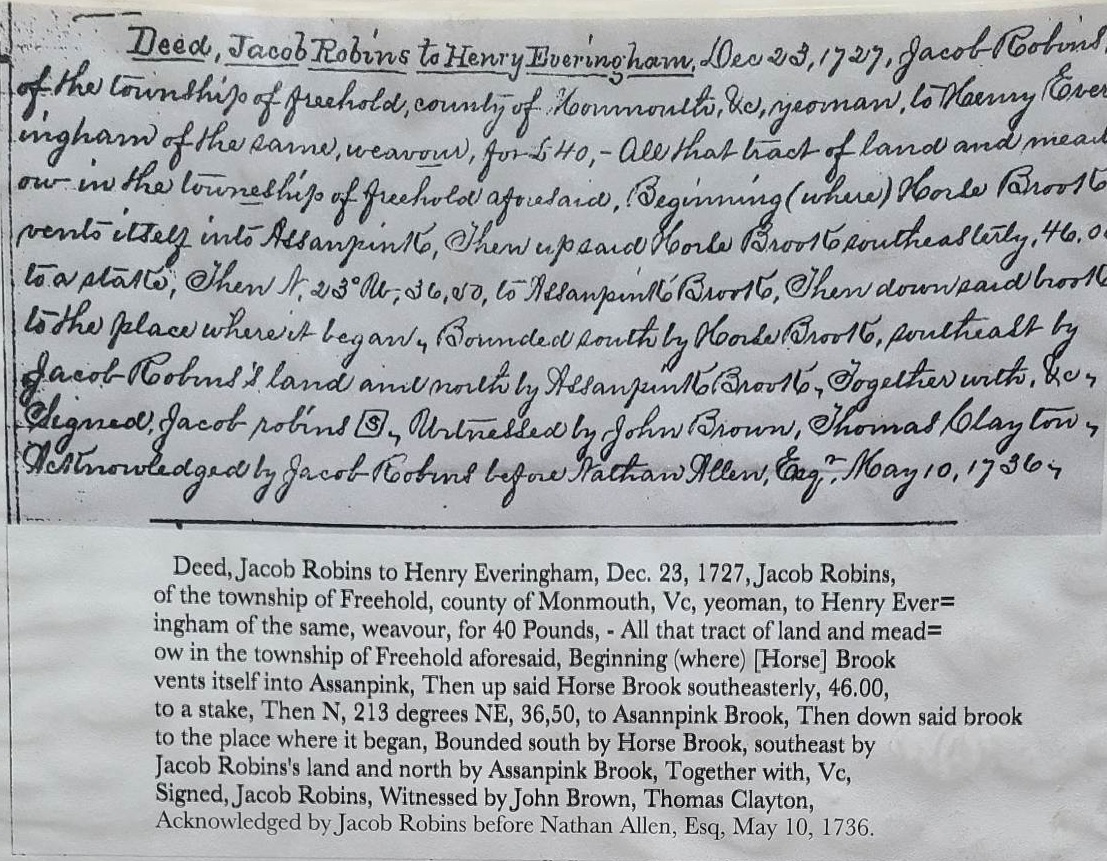 Deed, Jacob Robins to Henry Everingham, Dec 23, 1727, Jacob Robins
of the township of freehold, county of Monmouth, &c, yeoman, to Henry Ever
ingham of the same, weavour, for £40,- All that tract of land and mead
ow in the towneship of freehold aforesaid, Beginning (where) Horse Brook
vents itself into Assanpink, Then up said Horse Brook southeasterly, 46.0
to a stake, Then N, 23° W, 36,50, to Assanpink Brook, Then down said brook
to the place where it began, Bounded south by Horse Brook, southeast by
Jacob Robins's land and north by Assanpink Brook, Together with, &c,
Signed, Jacob robins S, Witnessed by John Brown, Thomas Clayton,
Acknowledged by Jacob Robins before Nathan Allen, Esqr, May 10, 1736,
Deed, Jacob Robins to Henry Everingham, Dec. 23, 1727, Jacob Robins,
of the township of Freehold, county of Monmouth, Vc, yeoman, to Henry Ever=
ingham of the same, weavour, for 40 Pounds, - All that tract of land and mead=
ow in the township of Freehold aforesaid, Beginning (where) [Horse] Brook
vents itself into Assanpink, Then up said Horse Brook southeasterly, 46.00,
to a stake, Then N, 213 degrees NE, 36,50, to Asannpink Brook, Then down said brook
to the place where it began, Bounded south by Horse Brook, southeast by
Jacob Robins's land and north by Assanpink Brook, Together with, Vc,
Signed, Jacob Robins, Witnessed by John Brown, Thomas Clayton,
Acknowledged by Jacob Robins before Nathan Allen, Esq, May 10, 1736.